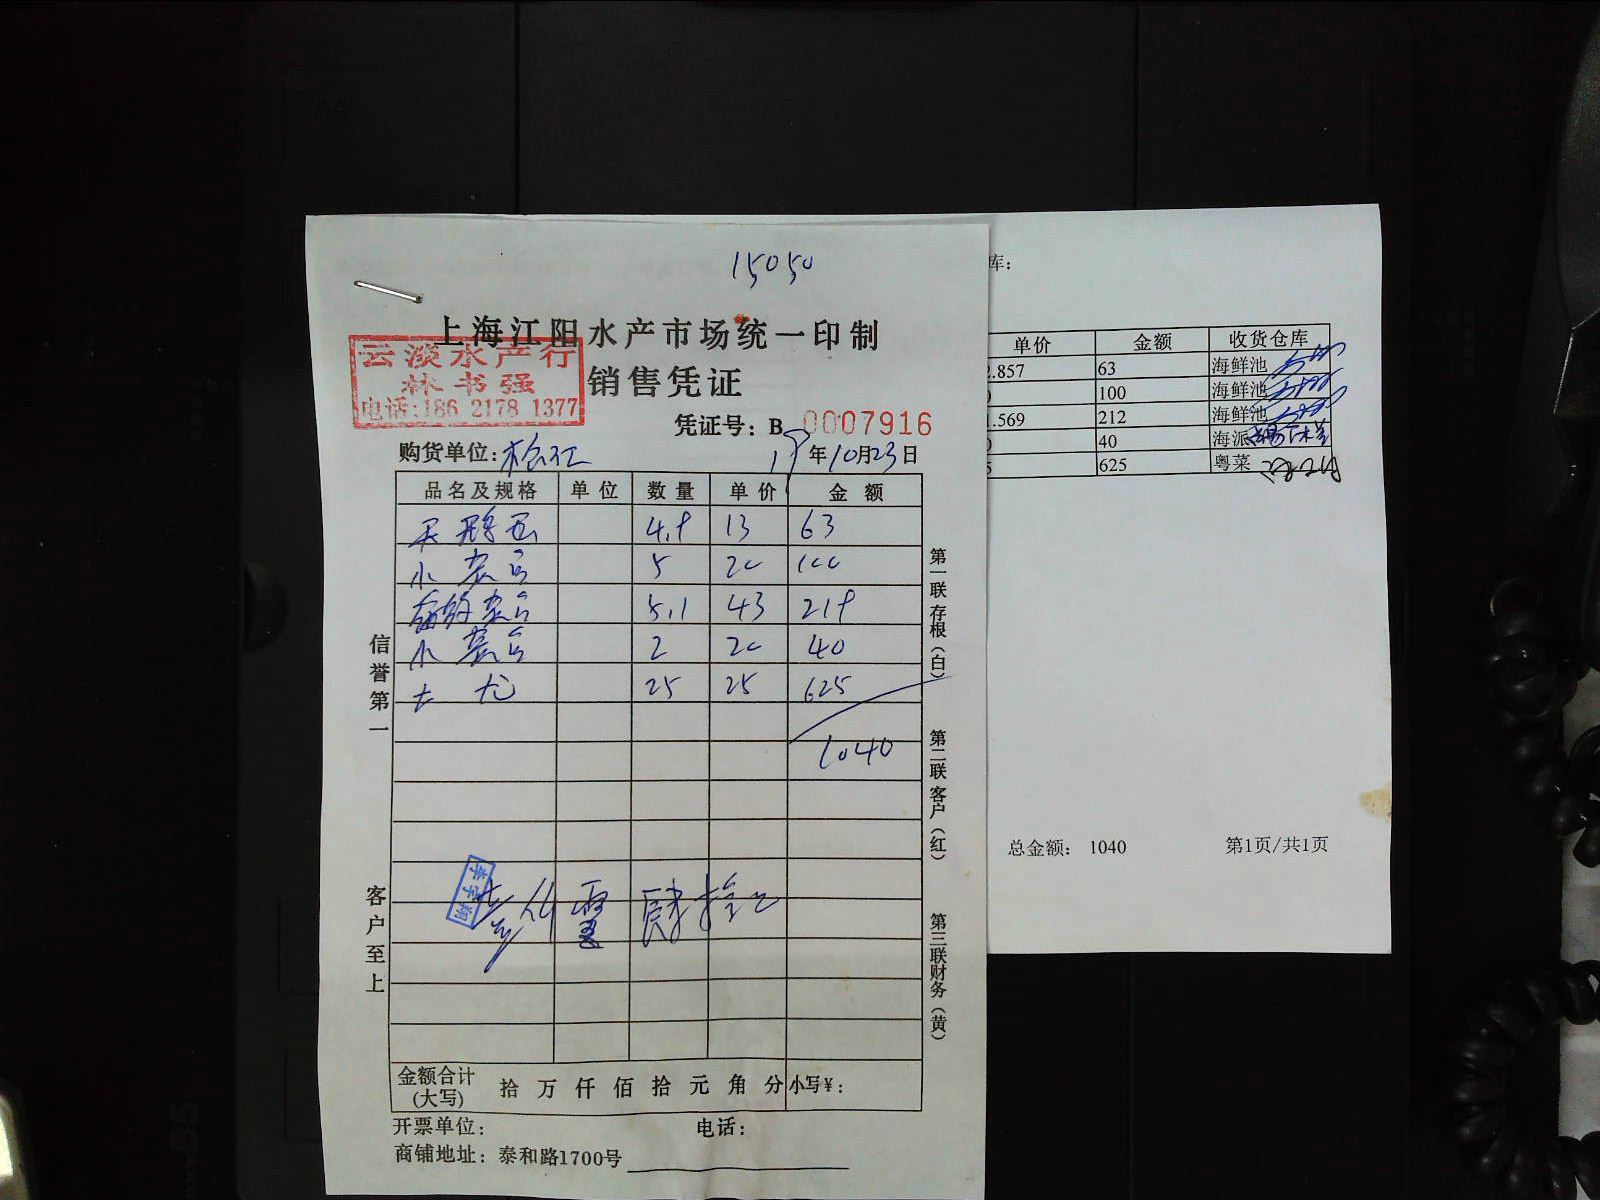 15050
上海江阳水产市场统一印制
云淡水产行
林书强
电话:186 2178 1377
销售凭证
凭证号: B 0007916
购货单位: 松江
19年10月23日
品名及规格 单位 数量 单价 金额
4.9 13 63
小 5 20 100
5.1 43 219
小 2 20 40
25 25 625
1040
壹仟零肆拾元
李宇桐
金额合计(大写) 拾 万 仟 佰 拾 元 角 分 小写¥:
开票单位: 电话:
商铺地址: 泰和路1700号
信誉第一
客户至上
第一联存根(白)
第二联客户(红)
第三联财务(黄)
库:
单价 金额 收货仓库
2.857 63 海鲜池
0 100 海鲜池
1.569 212 海鲜池
0 40 海派
5 625 粤菜
总金额: 1040 第1页/共1页